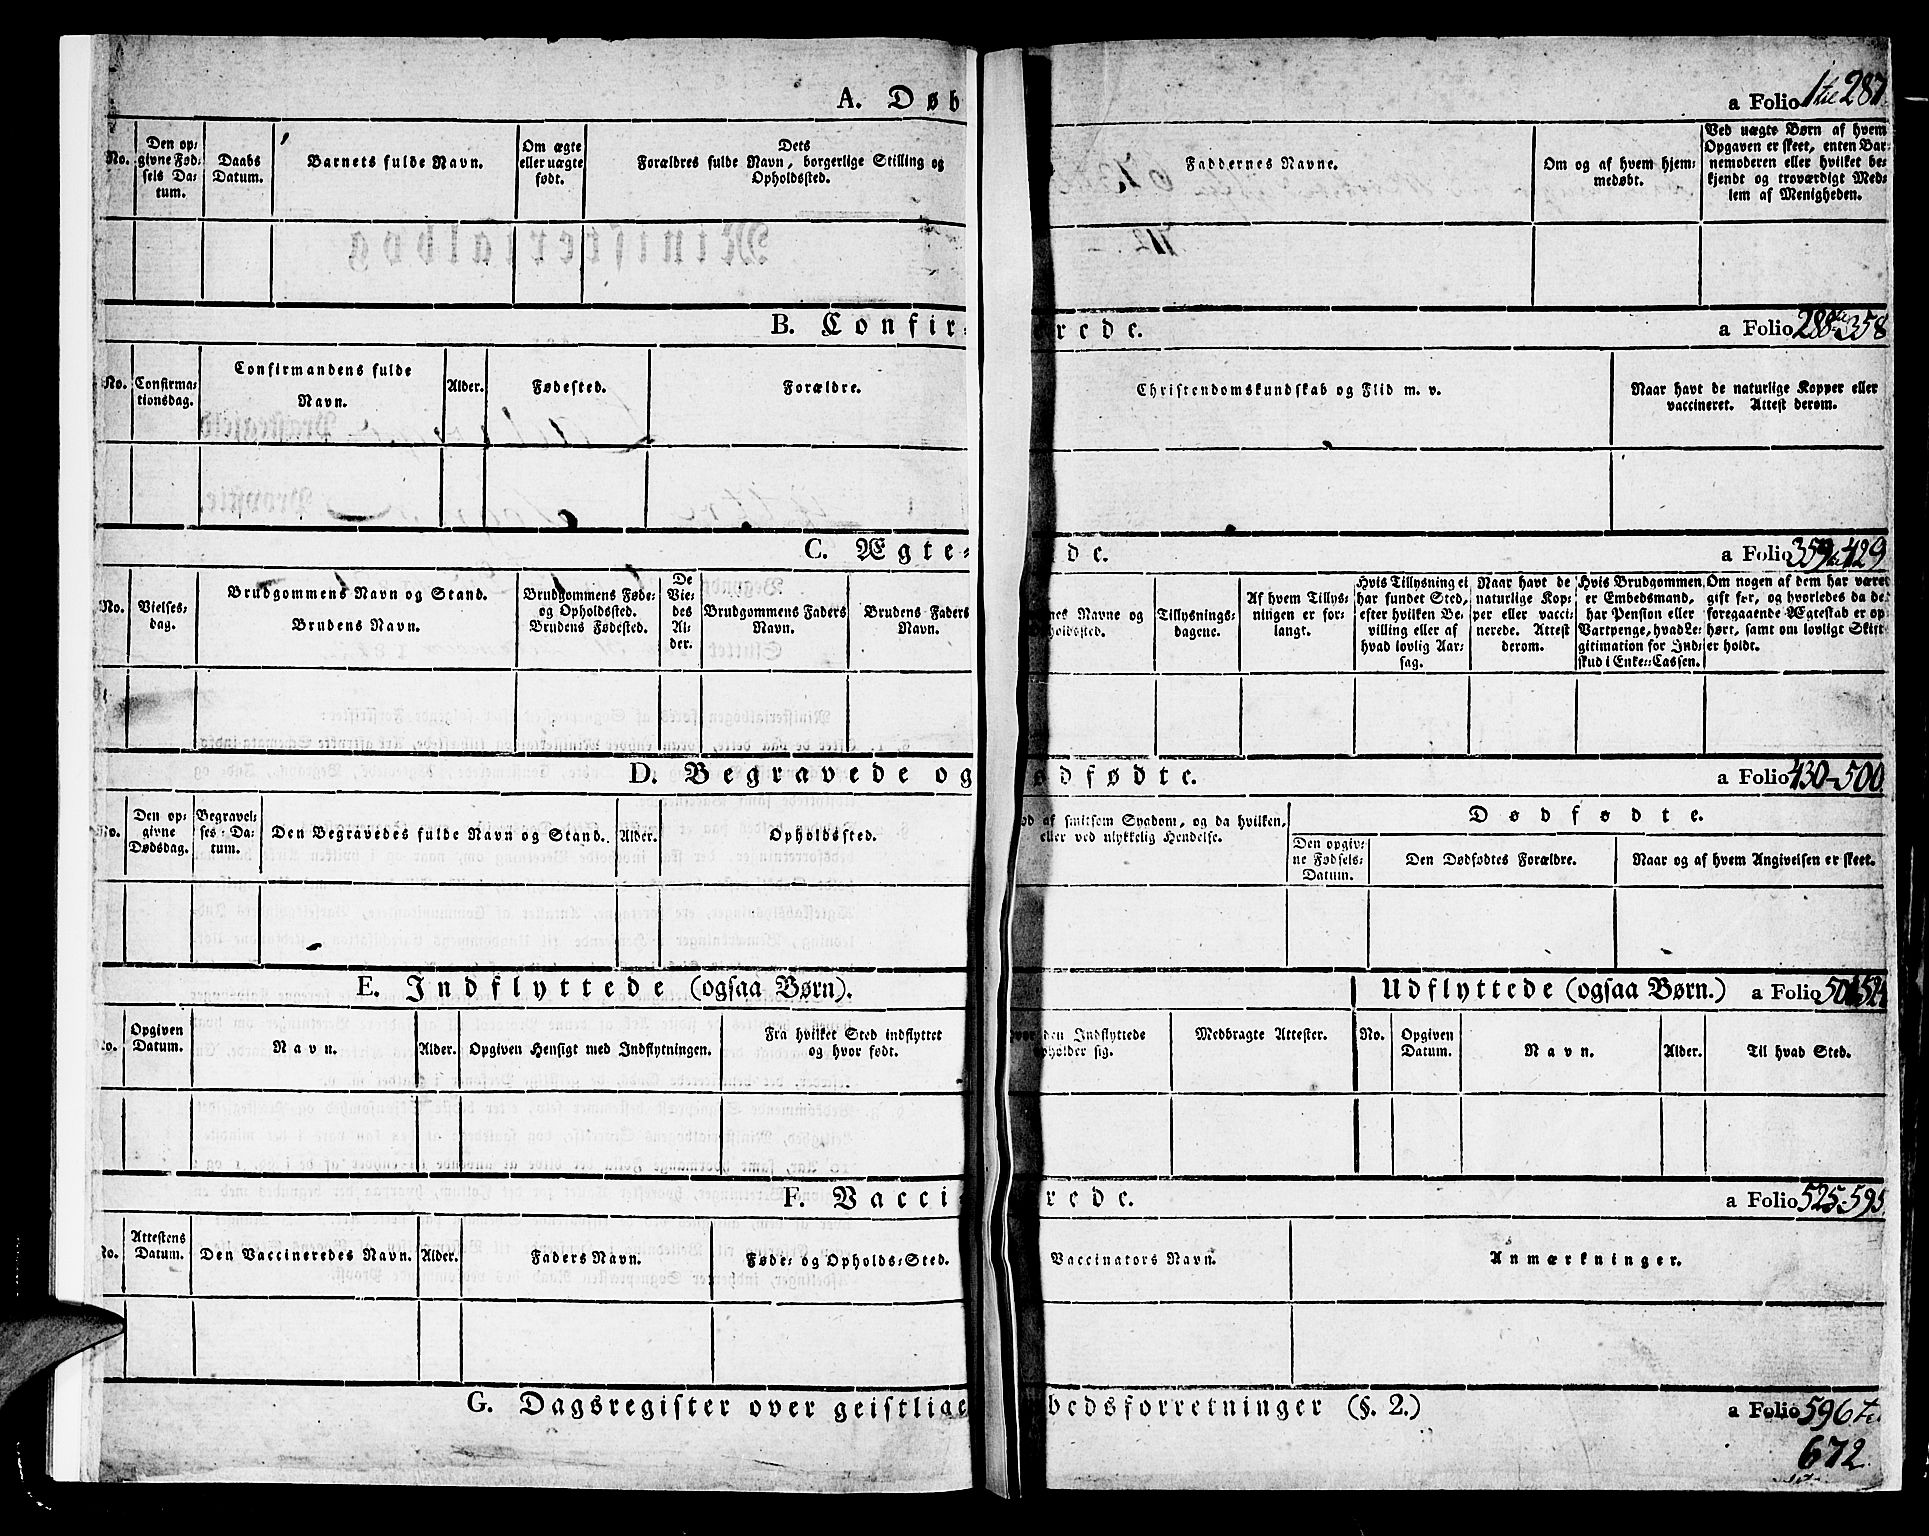 A. Døb
a Folio 1 til 287
No.
Den opgivne Fødsels Datum.
Daabs Datum.
Barnets fulde Navn.
Om ægte eller uægte født.
Dets Forældres fulde Navn, borgerlige Stilling og Opholdssted.
Faddernes Navne.
Om og af hvem hjemmedøbt.
Ved uægte Børn af hvem Opgaven er skeet, enten Barnemoderen eller hvilket bekjendt og troværdigt Medlem af Menigheden.
B. Confir-rede.
a Folio 288 til 358
No.
Confirmationsdag.
Confirmandens fulde Navn.
Alder.
Fødested.
Forældre.
Christendomskundskab og Flid m. v.
Naar havt de naturlige Kopper eller vaccineret. Attest derom.
C. Ægte-de.
a Folio 359 til 429
No.
Vielses-dag.
Brudgommens Navn og Stand.
Brudens Navn.
Brudgommens Føde- og Opholdssted.
Brudens Fødested.
De Viedes Alder.
Brudgommens Faders Navn.
Brudens Faders Navn.
nes Navne og
holdssted.
Tillysnings-dagene.
Af hvem Tillysningen er forlangt.
Hvis Tillysning ei har fundet Sted, efter hvilken Bevilling eller af hvad lovlig Aarsag.
Naar havt de naturlige Kopper eller vaccinerede. Attest derom.
Hvis Brudgommen er Embedsmand, har Pension eller Vartpenge, hvad Legitimation for Indskud i Enke-Cassen.
Om nogen af dem har været gift før, og hvorledes da det foregaaende Ægteskab er ophørt, samt om lovligt Skifte er holdt.
D. Begravede og ødfødte.
a Folio 430-500
No.
Den opgivne Dødsdag.
Begravelses-Datum.
Den Begravedes fulde Navn og Stand.
Alder.
Opholdssted.
af smitsom Sygdom, og da hvilken, eller ved ulykkelig Hendelse.
Dødfødte.
Den opgivne Fødsels-Datum.
Den Dødfødtes Forældre.
Naar og af hvem Angivelsen er skeet.
E. Indflyttede (ogsaa Børn).
Udflyttede (ogsaa Børn.)
a Folio
No.
Opgiven Datum.
Navn.
Alder.
Opgiven Hensigt med Indflytningen.
Fra hvilket Sted indflyttet og hvor født.
den Indflyttede
opholder sig.
Medbragte Attester.
No.
Opgiven Datum.
Navn.
Alder.
Til hvad Sted.
F. Vacci-rede.
a Folio 525-595
No.
Attestens Datum.
Den Vaccineredes Navn.
Alder.
Faders Navn.
Føde- og Opholds-Sted.
Vaccinators Navn.
Anmærkninger.
G. Dagsregister over geistlige bedsforretninger (§. 2.)
a Folio 596 til
672